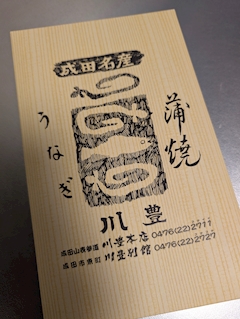 成田名産
蒲焼
うなぎ
川豊
成田山表参道 川豊本店 0476(22)2711
成田市東町 川豊別館 0476(22)2727